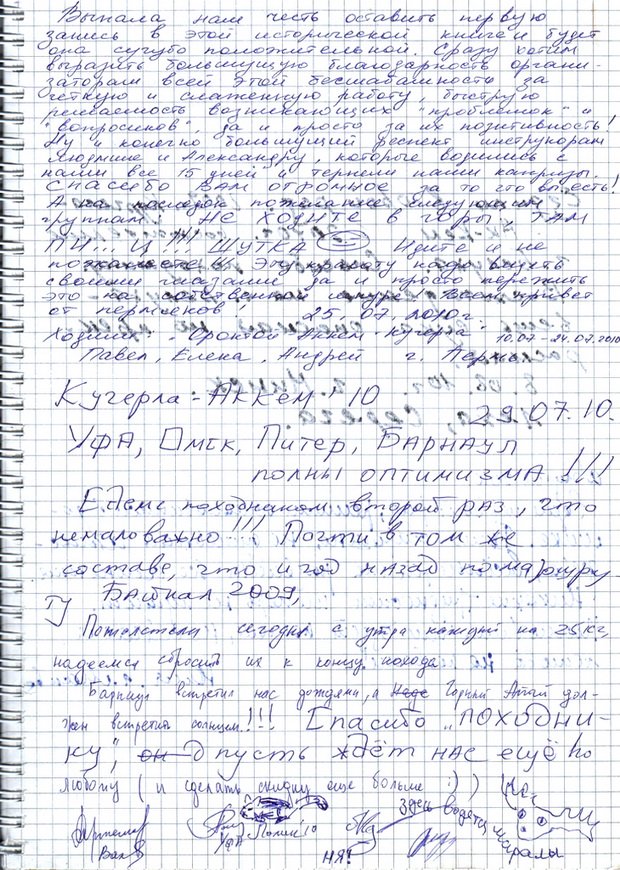 Выпала нам честь оставить первую
запись в этой исторической книге и будет
она сугубо положительной. Сразу хотим
выразить большущую благодарность органи-
заторам всей этой бесшабашности за
четкую и слаженную работу, быструю
решаемость возникающих "проблемок" и
"вопросиков", да и просто за их позитивность!
Ну и конечно большущий респект инструкторам
Людмиле и Александру, которые возились с
нами все 15 дней и терпели наши капризы.
Спасибо Вам огромное за то что вы есть!
А на последок пожелание следующим
группам: НЕ ХОДИТЕ в горы, ТАМ
ПИ... Ц!!!! ШУТКА Идите и не
пожалеете!!! Эту красоту надо видеть
своими глазами да и просто пережить
это на собственной шкуре. Всем привет
от пермяков. 25.07.2010г
Ходили "Кроткой Аккем Кучерла" 10.07 - 24.07.2010
Павел, Елена, Андрей г. Пермь
Кучерла - Аккем - 10
29.07.10.
Уфа, Омск, Питер, Барнаул
полны оптимизма!!!
Едем с походником второй раз, что
немаловажно!!! Почти в том же
составе, что и год назад по маршруту
Байкал 2009,
Потолстели сегодня с утра каждый на 25 кг,
надеемся сбросить их к концу похода
Барнаул встретил нас дождями, а Горный Алтай дол-
жен встретить солнцем!!! Спасибо "Походни-
ку", пусть ждёт нас ещё по
любому (и сделать скидку еще больше :))
Здесь водятся маралы
Уфа
НЯ!